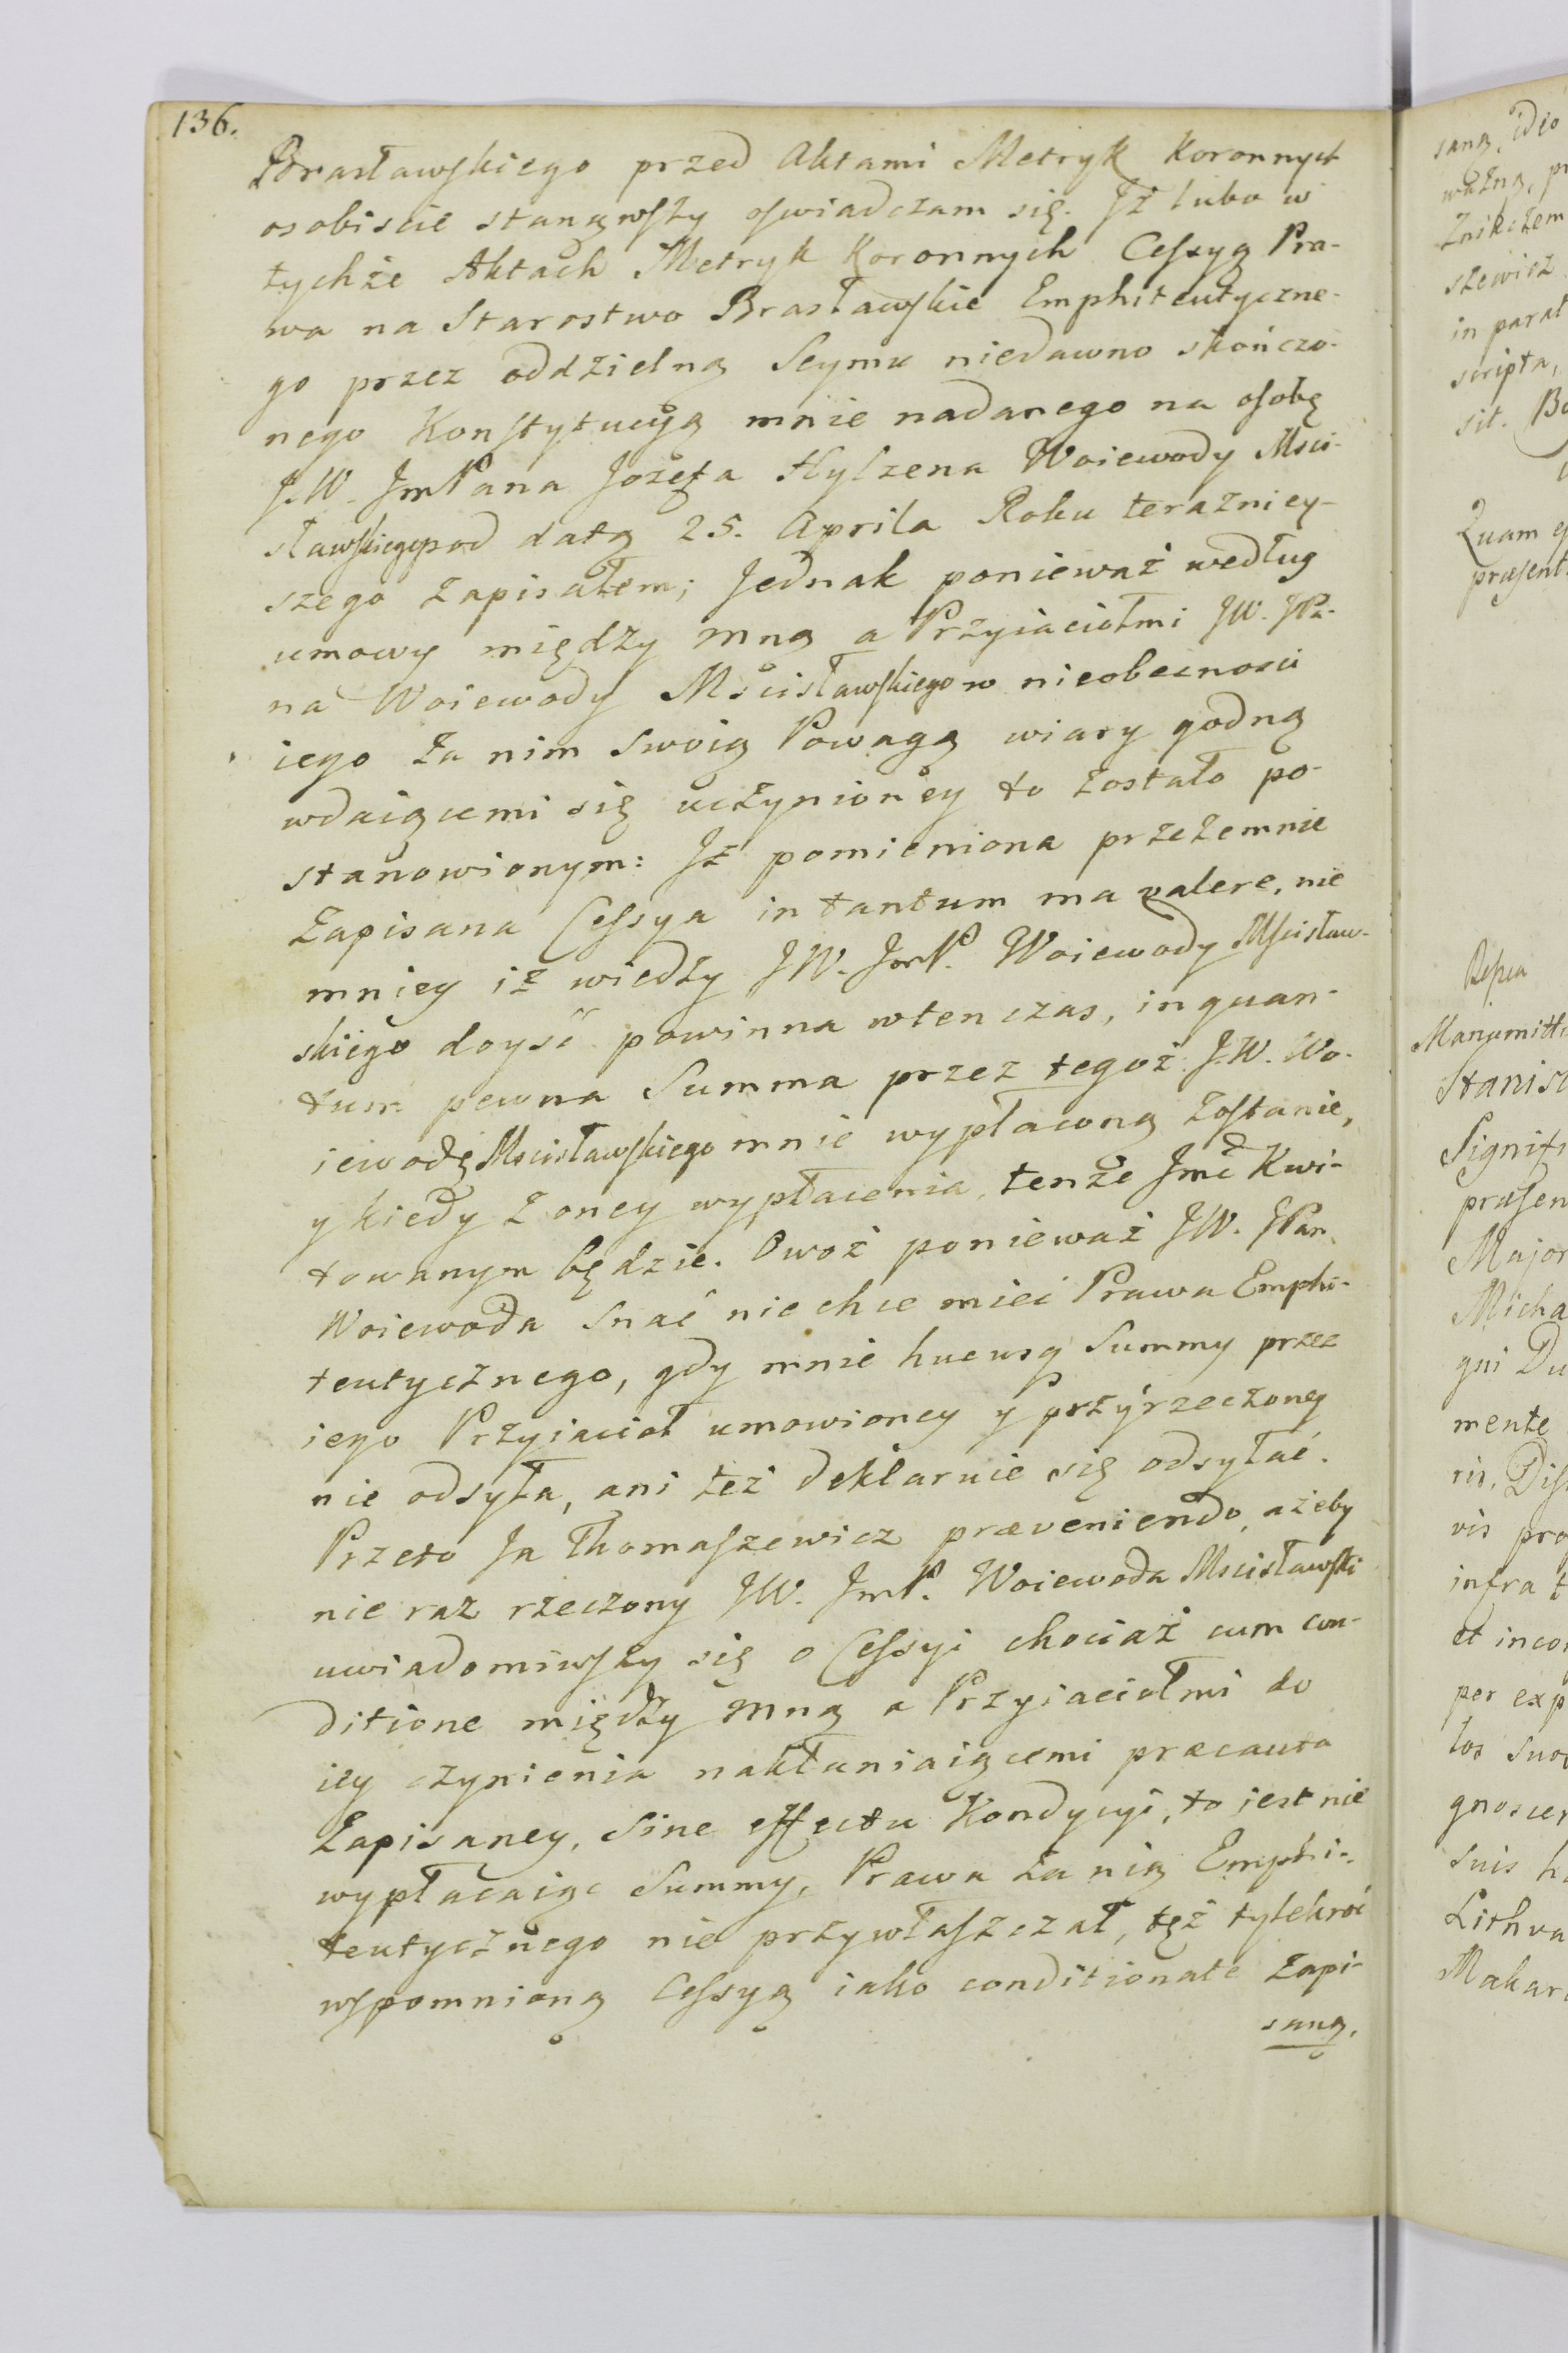 136.
Brasławskiego przed Aktami Metryk Koronnych
osobiscie stanąwszy oswiadczam się. Iż lubo w
tychże Aktach Metryk Koronnych Cessyą Pra-
wa na Starostwo Brasławskie Emphiteutyczne-
go przez oddzielną Seymu niedawno skończo-
nego Konstytucyą mnie nadanego na osobę
J.W. JmPana Jozefa Hylzena Woiewody Msci-
sławskiego pod datą 25. Aprila Roku teraźniey-
szego zapisałem; Jednak ponieważ według
umowy między mną a Przyiaciołmi JW. JPa-
na Woiewody Mścisławskiego w nieobecnosci
iego za nim swoią Powagą wiary godną
wdaiącemi się uczynioney to zostało po-
stanowionym: Iż pomieniona przezemnie
Zapisana Cessya in tantum ma valere, nie
mniey iż wiedzy JW. JmP. Woiewody Mscisław-
skiego doyść powinna wtenczas, in quan-
tum pewna Summa przez tegoż J.W. Wo-
iewodę Mscisławskiego mnie wypłaconą zostanie,
y kiedy z oney wypłacenia, tenże Jmć Kwi-
towanym będzie. Owoż ponieważ JW. JPan
Woiewoda snać nie chce mieć Prawa Emphi-
teutycznego, gdy mnie hucusq Summy przez
iego Przyiacioł umowioney y przyrzeczoney
nie odsyła, ani też deklaruie się odsyłać.
Przeto Ja Thomaszewicz præveniendo, ażeby
nie raz rzeczony JW. JmP. Woiewoda Mscisławski
uwiadomiwszy się o Cessyi chociaż cum con-
ditione między mną a Przyiaciołmi do
iey czynienia nakłaniaiącemi præcauta
Zapisaney, sine effectu Kondycyi, to iest nie
wypłacaiąc Summy, Prawa za nią Emphi-
teutycznego nie przywłaszczał, tęż tylekroć
wspomnioną Cessyą iako conditionate zapi-
saną,
saną, ideo
ważną, pr
Znikczem
szewicz
in parat
scripta,
sit.
Quam
præsent
Manumitt
Stanisł
Signifi
præsen
Major
Micha
gni Du
mente
ris, Dis
vis pro
infra
et inco
per exp
los suos
gnoscer
suis
Lithva
Makar